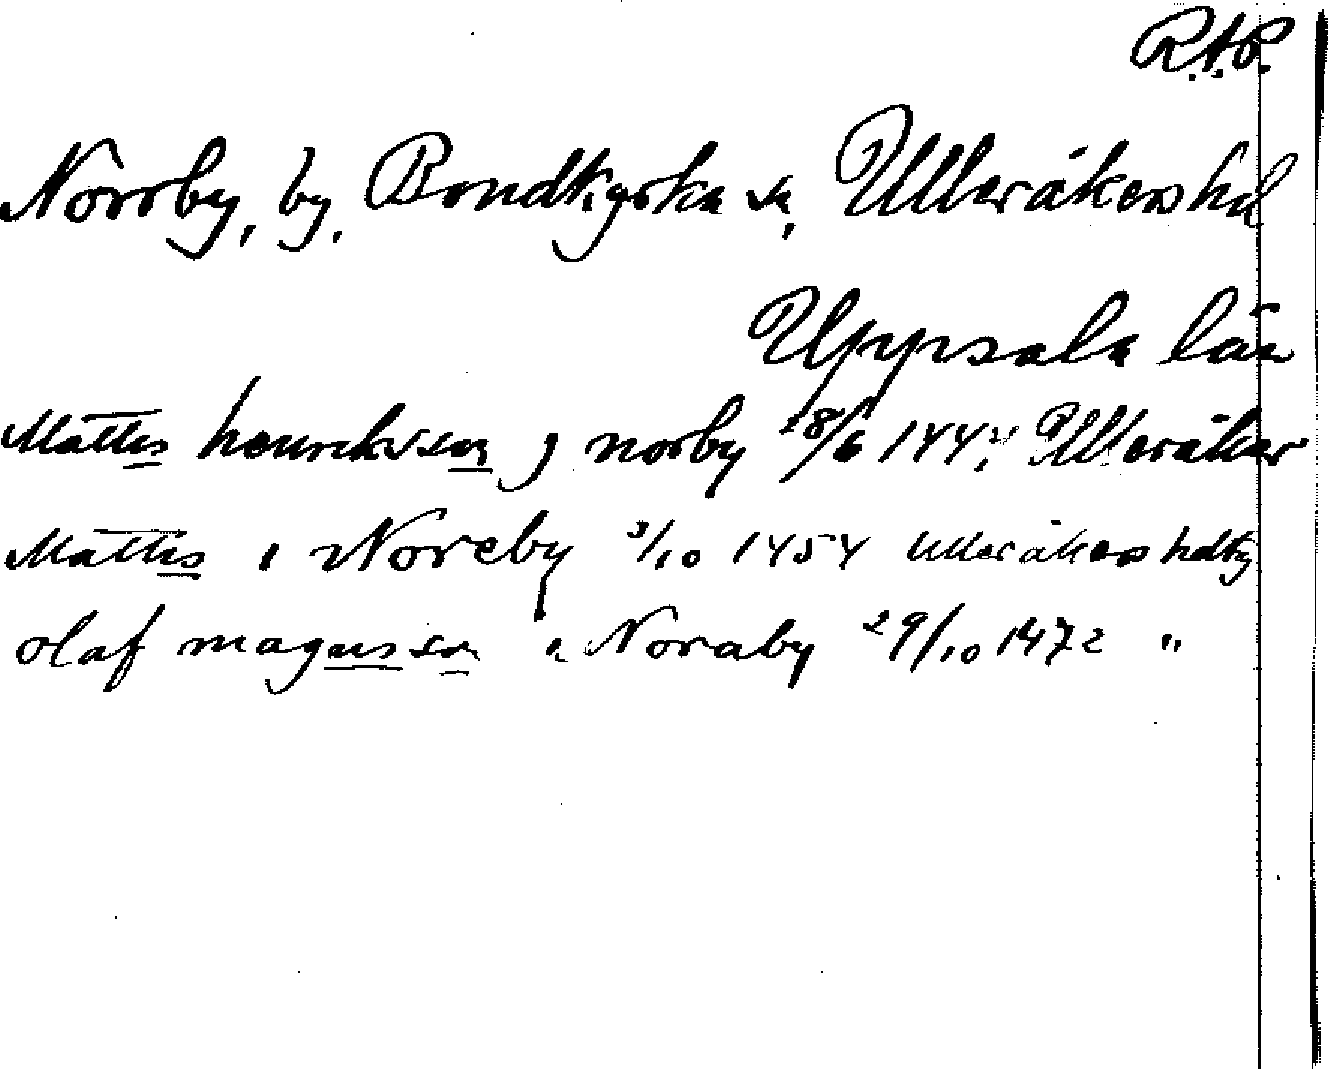 R.A.P.
Norrby, by. Bondkyrka sn, Ulleråkers hd
Uppsala län
Mattis henrikssøn j norby 18/6 1444 Ulleråker
Mattis i Noreby 3/10 1454 Ulleråkers hdtg
olaf magnusson i Noraby 29/10 1472 "